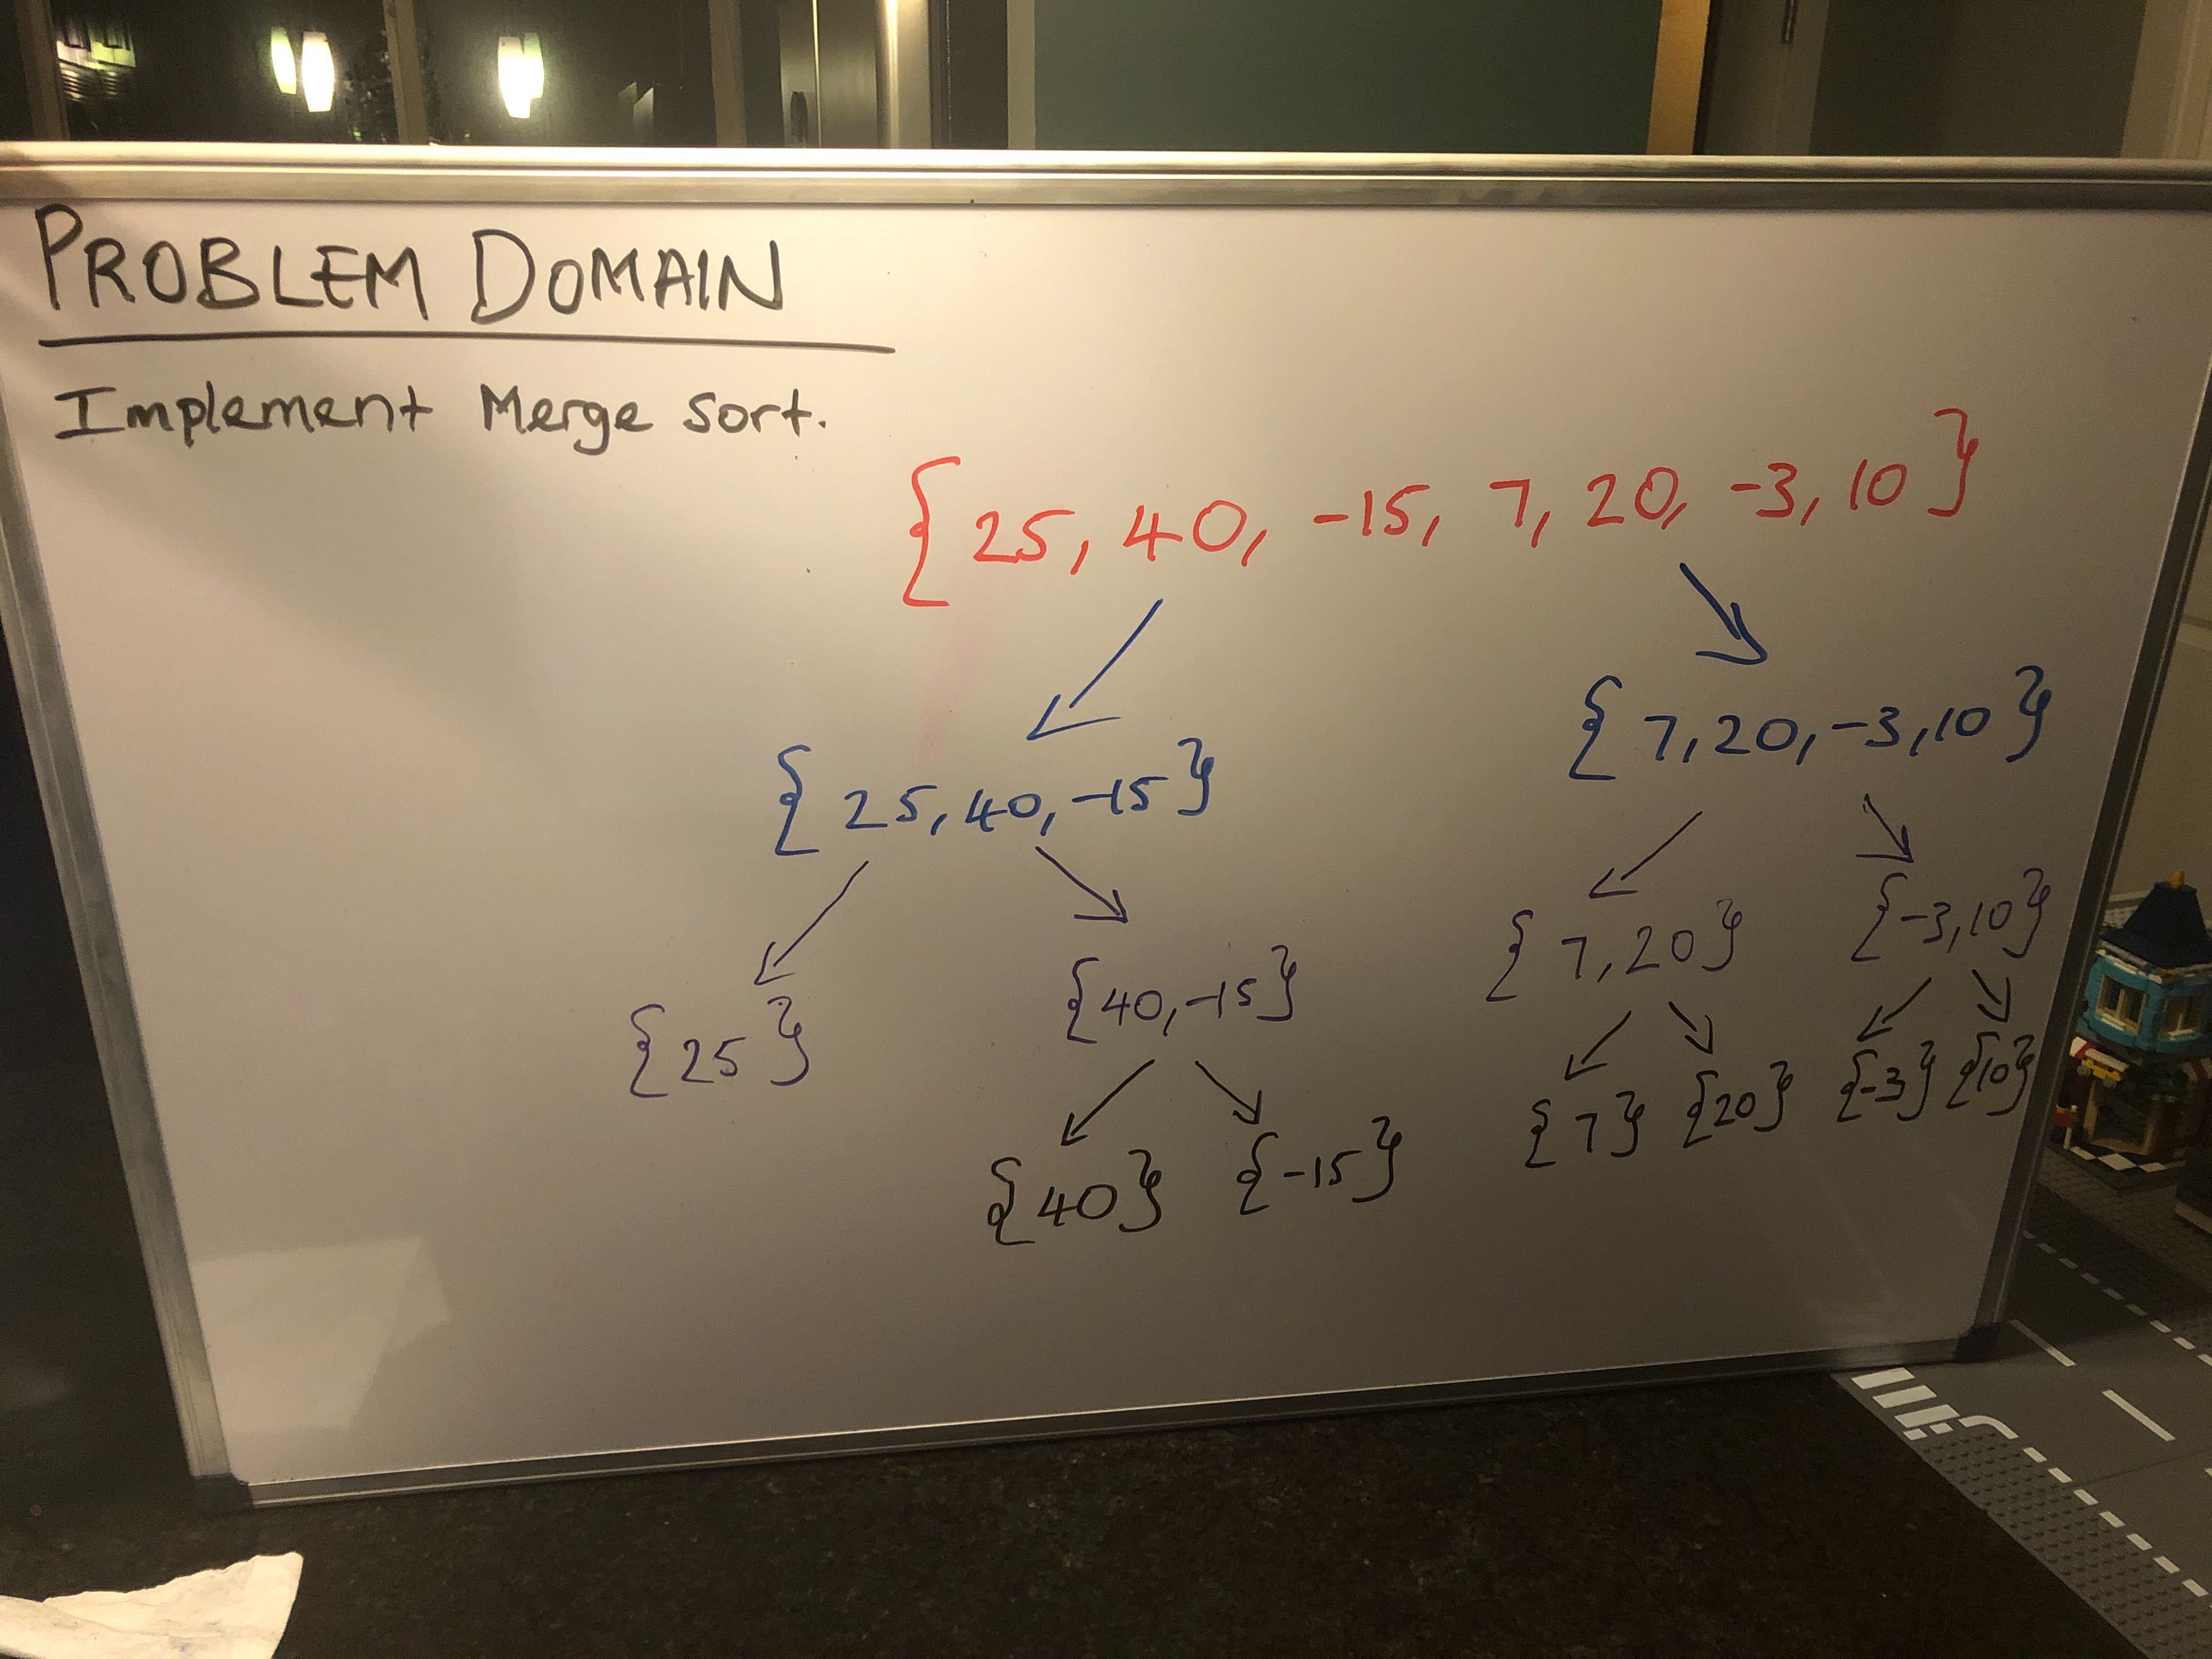 PROBLEM DOMAIN
Implement Merge sort.
{ 25, 40, -15, 7, 20, -3, 10 }
{ 25, 40, -15 }
{ 7, 20, -3, 10 }
{ 25 }
{ 40, -15 }
{ 7, 20 }
{ -3, 10 }
{ 40 }
{ -15 }
{ 7 }
{ 20 }
{ -3 }
{ 10 }